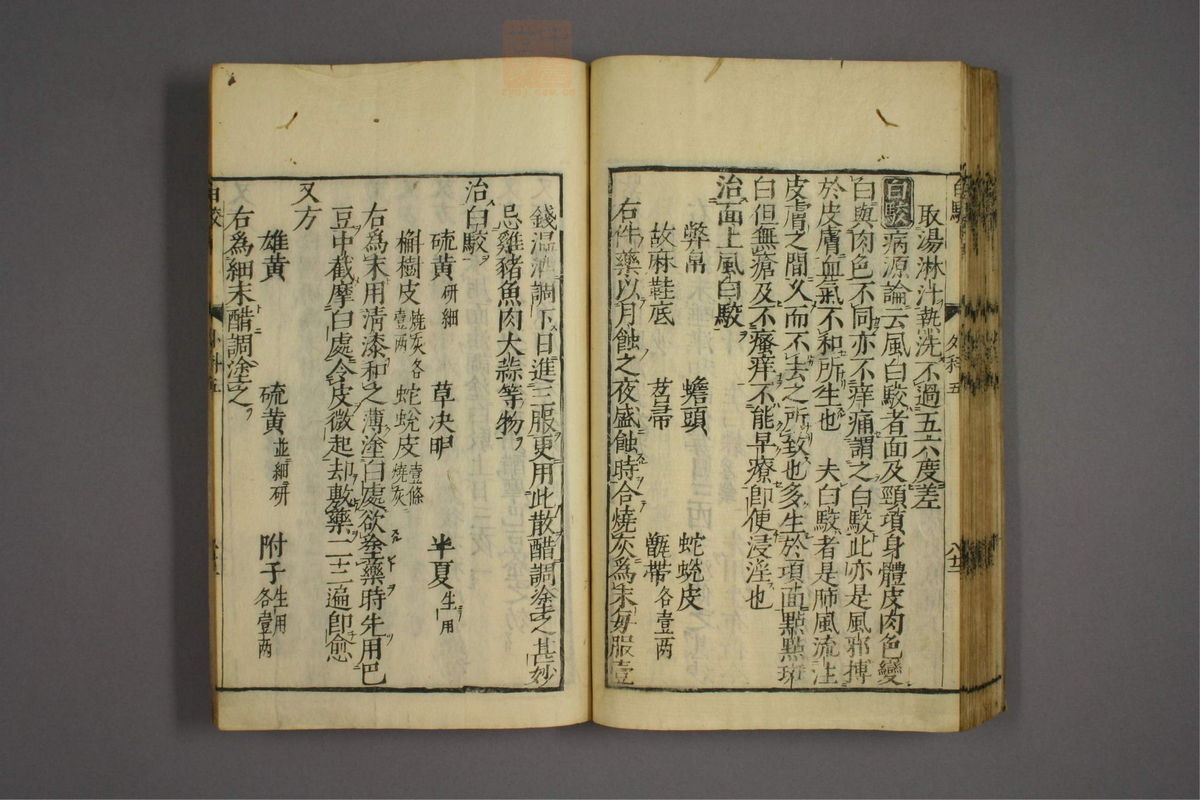 取湯淋汁熱洗不過五六度差
白駮病源論云風白駮者面及頸項身體皮肉色變
白與肉色不同亦不痒痛謂之白駮此亦是風邪搏
於皮膚血氣不和所生也　夫白駮者是肺風流注
皮膚之間久而不去之所致也多生於項面點點斑
白但無瘡及不瘙痒不能早療即便浸淫也
治面上風白駮
弊帛　蟾頭　蛇蛻皮
故麻鞋底　苕帚　甑帶各壹兩
右件藥以月蝕之夜盛蝕時合燒灰爲末每服壹
錢溫酒調下日進三服更用此散醋調塗之甚妙
忌雞豬魚肉大蒜等物
治白駮
硫黃研細　草決明　半夏生用
槲樹皮燒灰各壹兩　蛇蛻皮壹條燒灰
右爲末用清漆和之薄塗白處欲塗藥時先用巴
豆中截摩白處令皮微起却敷藥二三遍即愈
又方
雄黃　硫黃並細研　附子生用各壹兩
右爲細末醋調塗之
白駮
外科五